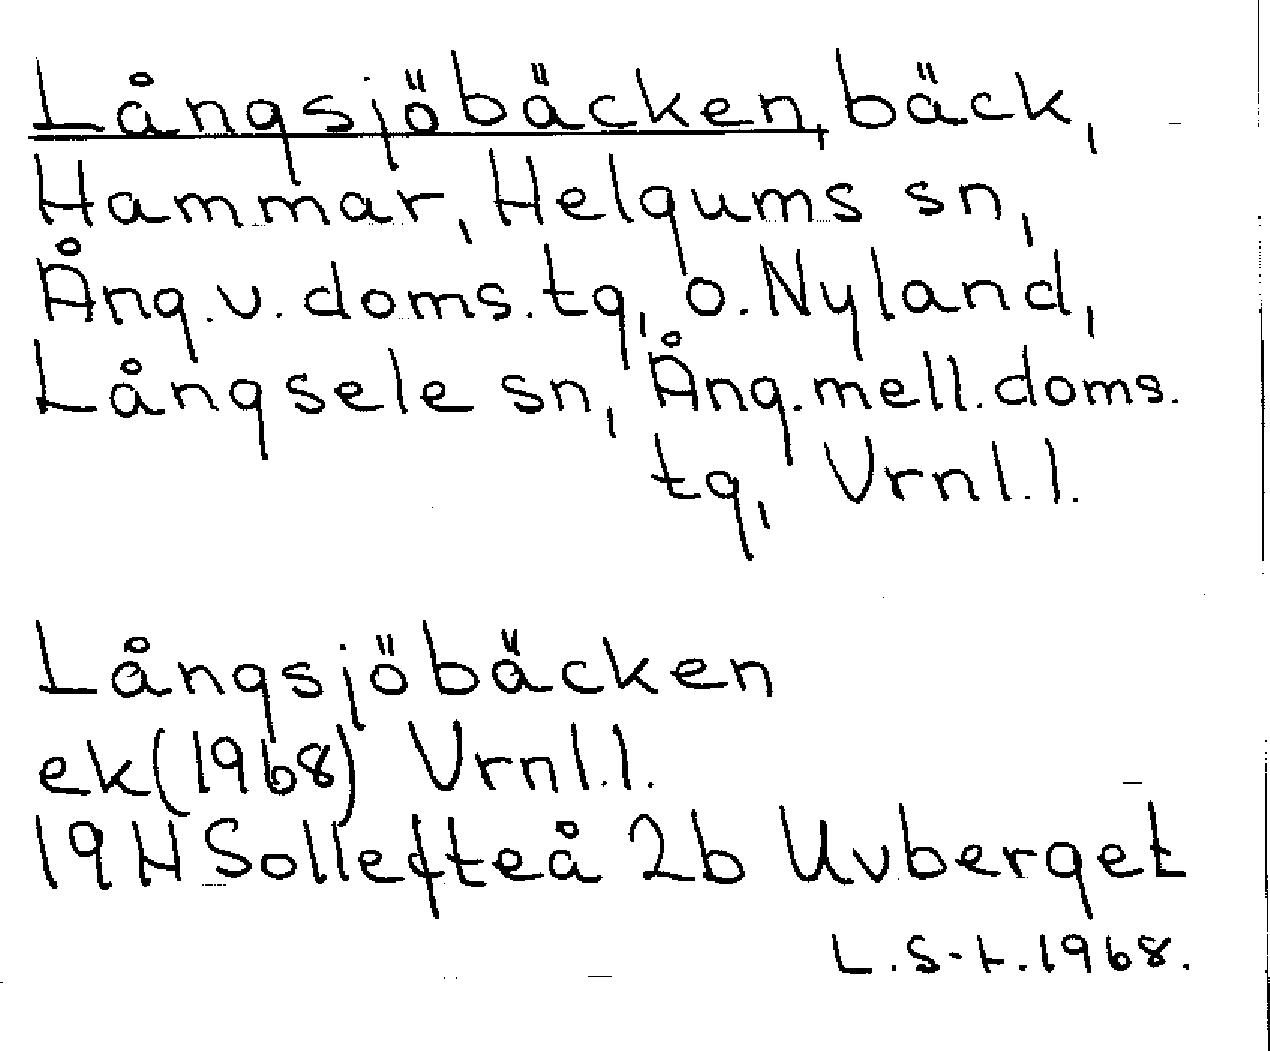 Långsjöbäcken, bäck,
Hammar, Helgums sn,
Ång.v.doms.tg, o.Nyland,
Långsele sn, Ång.mell.doms.
tg, Vrnl.l.
Långsjöbäcken
ek(1968) Vrnl.l.
19H Sollefteå 2b Uvberget
L.S-t.1968.